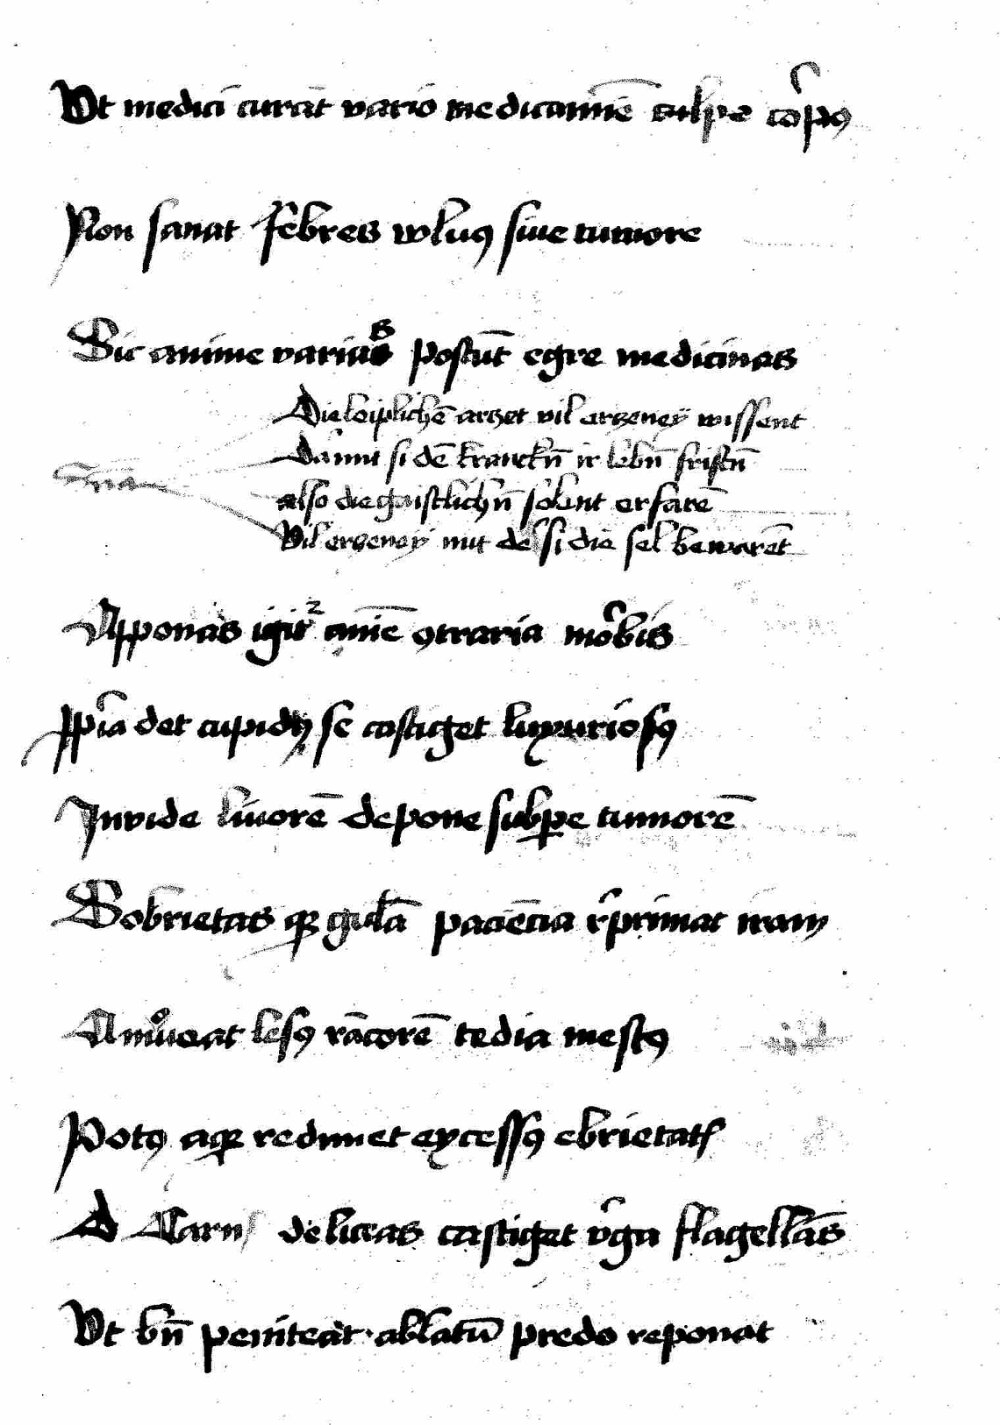 Vt medici curāt vario medicamīe culpe corp9
Non sanat febres vuln9 siue tumore
Sic anime varias postūt egre medicinas
Die leiplichē arczet vil erczeney wissent
Da mit si dē kranckn̄ ir lebn̄ fristn̄
also die gaistlichn̄ solent erfarē
Vil erczeney mit de si die sel bewarēt
Apponas igit² aīe 9traria morbis
det cupid9 se castiget luxurios9
Inuide liuorē depone supbe tumorē
Sobrietas gulā paciēcia rprimat iram
Amoueat les9 rācorē tedia mest9
Pot9 aque redimet excess9 ebrietatꝭ
Carnꝭ delicias castiget v̓ga flagellās
Vt bn̄ peniteat ablatū predo reponat